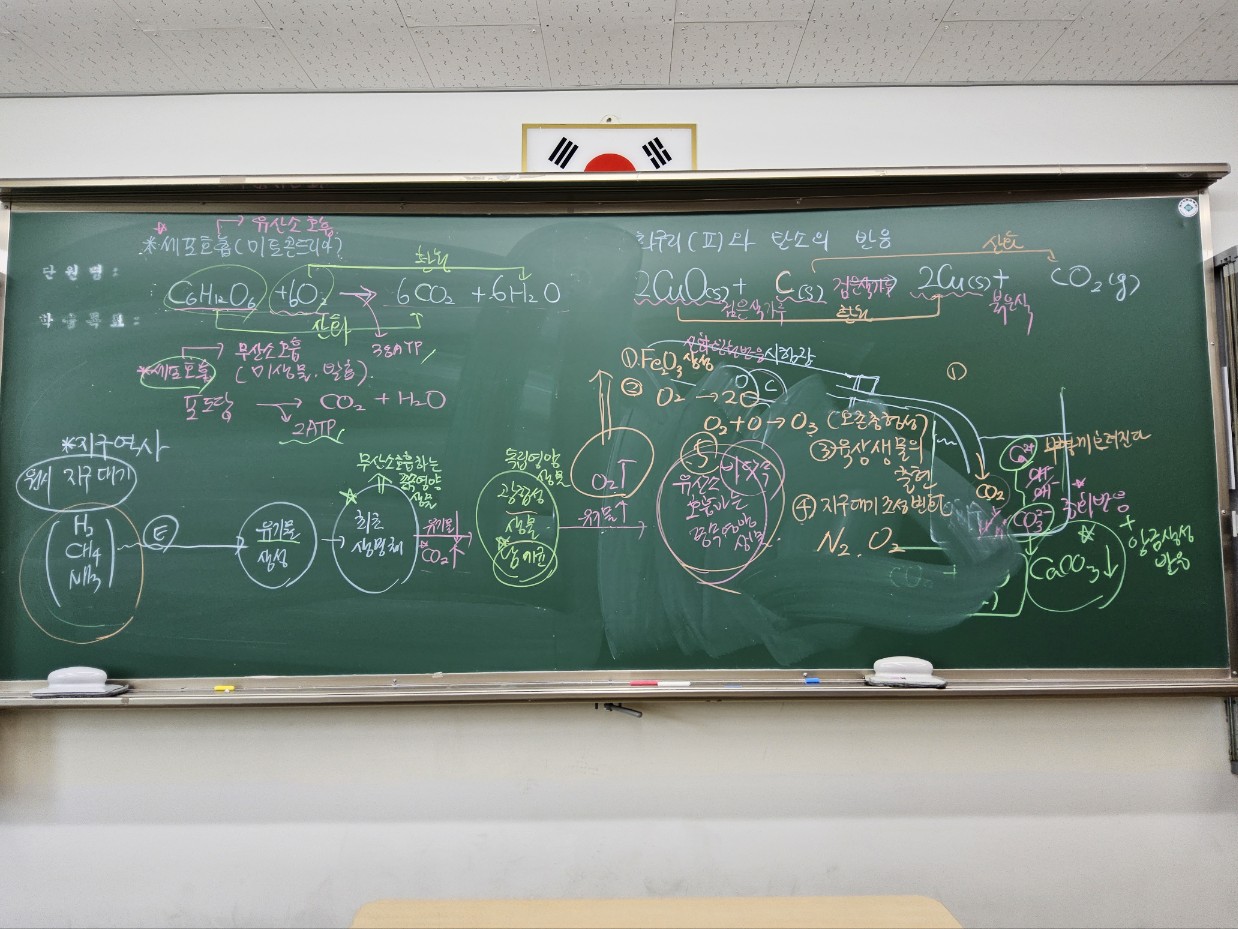 유산소 호흡
*세포호흡(미토콘드리아)
단원명:
C6H12O6 + 6O2 → 6CO2 + 6H2O
환원
산화
38ATP
학습목표:
*세포호흡 → 무산소 호흡
(미생물, 발효)
포도당 → CO2 + H2O
2ATP
*지구역사
원시 지구 대기
H2
CH4
NH3
E
유기물
생성
무산소호흡하는
종속영양
생물
최초
생명체
유기물↓
CO2↑
독립영양
생물
광합성
생물
남세균
유기물↑
O2↑
유산소
호흡하는
종속영양
생물
산화구리(II)와 탄소의 반응
2CuO(s) + C(s) → 2Cu(s) + CO2(g)
산화
검은색가루
검은색가루
환원
붉은색
시험관
① Fe2O3 생성
② O2 → 2O
O2 + O → O3 (오존층형성)
③ 육상생물의
출현
④ 지구대기 조성변화
N2, O2
①
CO2
Ca2+
OH-
OH-
CO3^2-
뿌옇게 흐려진다
중화반응
CO2 +
CaCO3↓
+
앙금생성
반응